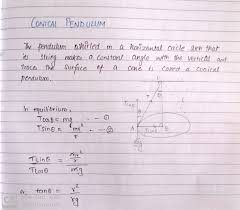 CONICAL PENDULUM
The pendulum whirled in a horizontal circle such that
its string makes a constant angle with the vertical and
trace the surface of a cone is called a conical
pendulum.
In equilibrium,
Tcosθ = mg --- ①
Tsinθ = mv²/r --- ②
Tsinθ / Tcosθ = mv²/r / mg
a. tanθ = v²/rg